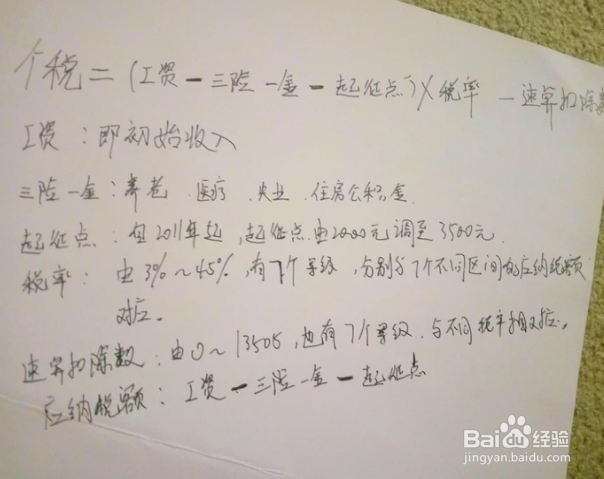 个税=(工资-三险一金-起征点)×税率-速算扣除数
工资:即初始收入
三险一金:养老、医疗、失业、住房公积金.
起征点:自2011年起,起征点由2000元调至3500元.
税率:由3%~45%,有7个等级,分别与7个不同区间的应纳税额
对应。
速算扣除数:由0~13505,也有7个等级.与不同税率相对应。
应纳税额:工资-三险一金-起征点
Baidu经验
jingyan.baidu.com